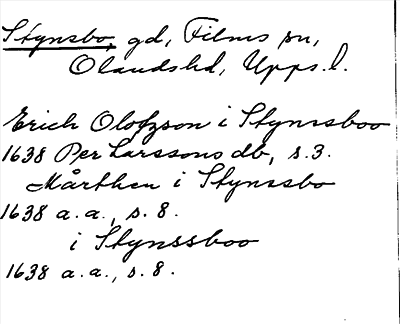 Stynsbo, gd, Films sn,
Olandshd, Upps. l.
Erich Olofzson i Stynssboo
1638 Per Larssons db, s. 3.
Mårthen i Stynssbo
1638 a. a., s. 8.
i Stynssboo
1638 a. a., s. 8.